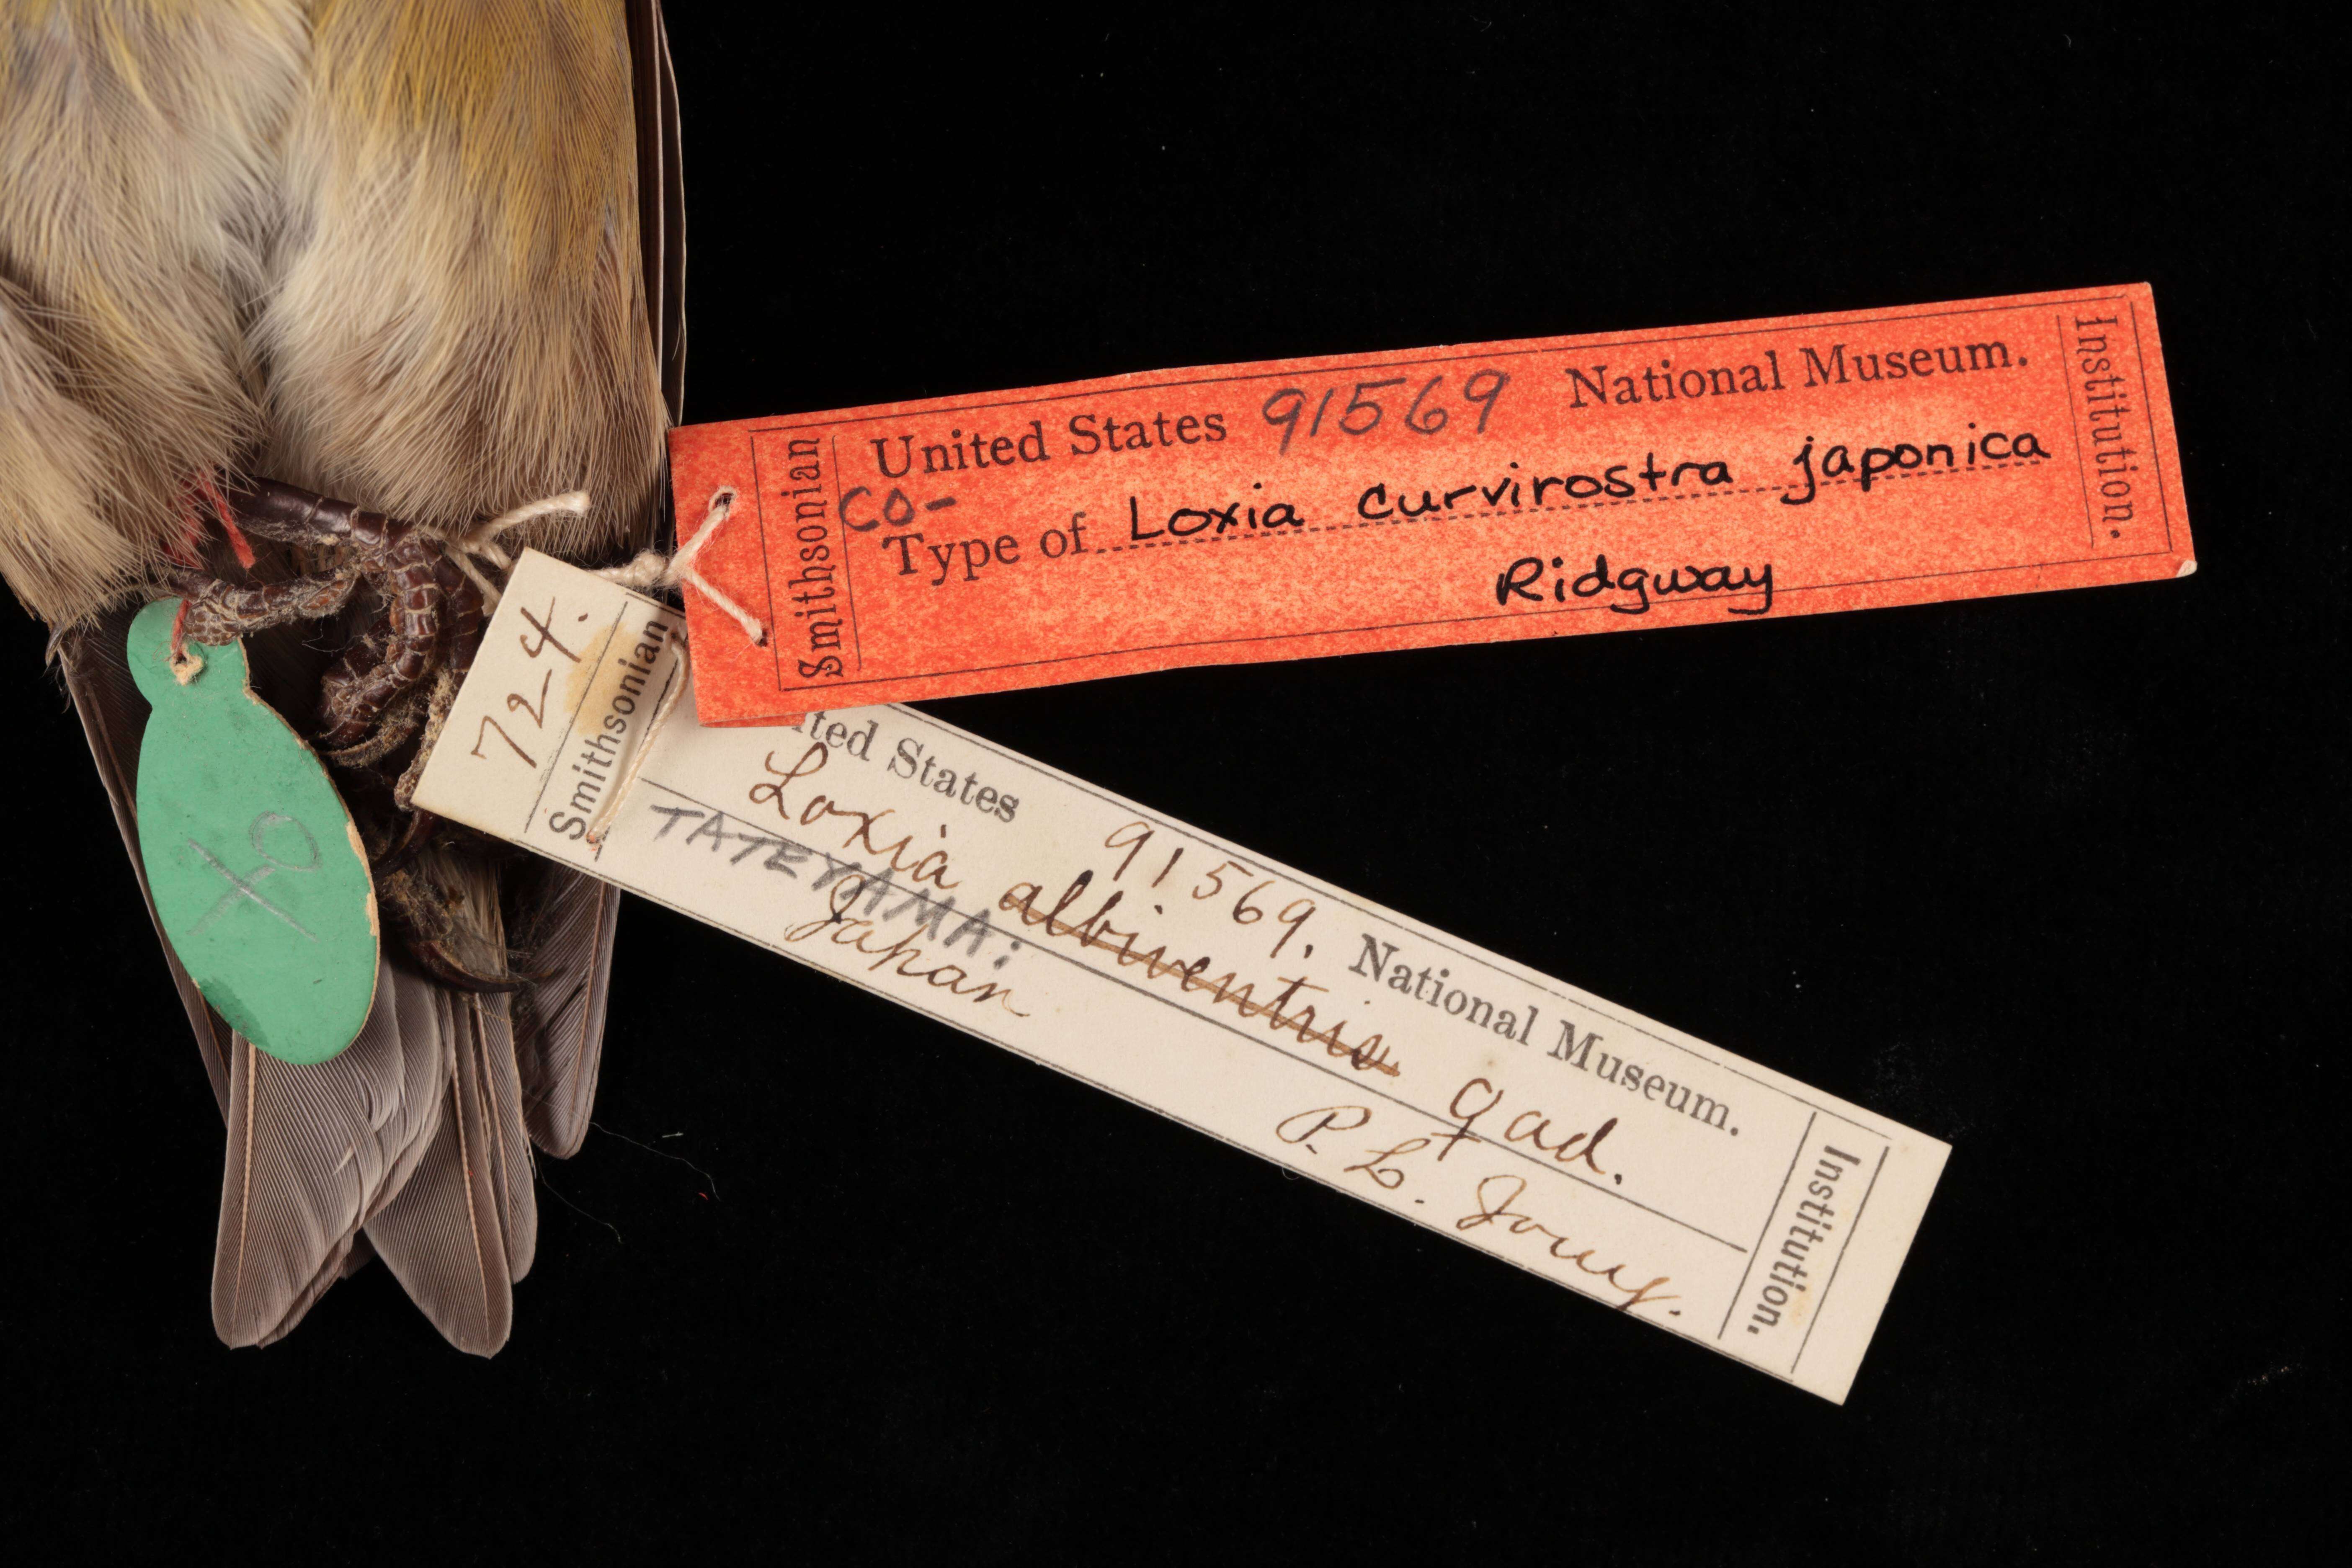 Smithsonian
United States 91569 National Museum.
CO-
Type of Loxia curvirostra japonica
Ridgway
Institution.
724.
Smithsonian
ited States 91569. National Museum.
Loxia albiventris ♀ ad.
TATEYAMA:
Japan P. L. Jouy.
Institution.
♀